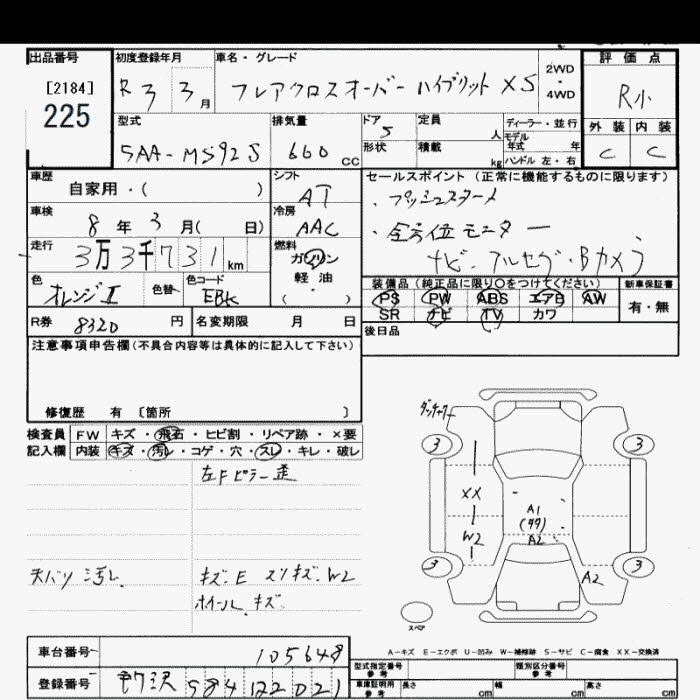 出品番号 初度登録年月 車名・グレード 2WD・4WD 評価点
[2184]
225
R3 3月 フレアクロスオーバー ハイブリット XS R小
型式 排気量 ドア 定員 人 ディーラー・並行 外装 内装
モデル年式 年
5AA-MS92S 660cc 5 形状 積載 kg ハンドル 左・右 C C
車歴 シフト セールスポイント(正常に機能するものに限ります)
自家用・( ) AT ・プッシュスタート
車検 冷房 ・全方位モニター
8年3月( 日) AAC ナビ・フルセグ・Bカメラ
走行 燃料
3万3千731km ガソリン
軽油
・( )
色 色替 色コード 装備品(純正品に限り○をつけてください) 新車保証書
オレンジII EBK PS PW ABS エアB AW 有・無
SR ナビ TV カワ
R券 8320円 名変期限 月 日 後日品
注意事項申告欄(不具合内容等は具体的に記入して下さい)
修復歴 有 〔箇所 〕
検査員 FW キズ・飛石・ヒビ割・リペア跡・×要
記入欄 内装 キズ・汚レ・コゲ・穴・スレ・キレ・破レ
左Fピラー歪
3 3
XX A1
W2 A2
3 3
A2
天バリ汚レ キズ.E スリキズ.W2
ホイール.キズ
スペア
A-キズ E-エクボ U-凹み W-補修跡 S-サビ C-腐食 XX-交換済
車台番号 105648
型式指定番号 参考 類別区分番号 参考
登録番号 584 122021
車庫証明用 参考 長さ cm 幅 cm 高さ cm